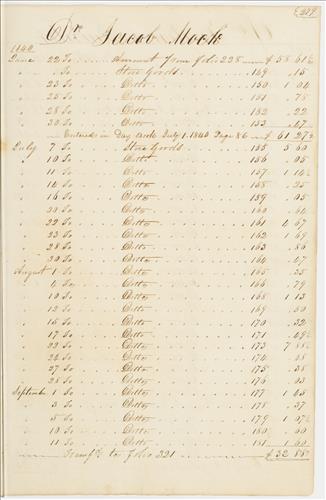 Dr. Jacob Mock
1840
June 22 To Amount from folio 228 $ 58 61½
" " To Store Goods 149 .15
" 23 To Ditto 150 1 04
" 25 To Ditto 151 .75
" 28 To Ditto 152 .22
" 30 To Ditto 153
Entered in Day Book July 1. 1840 Page 86 $ 61 27½
July 7 To Store Goods 155 3 60
" 10 To Ditto 156 .05
" 11 To Ditto 157 1 14
" 14 To Ditto 158 .25
" 16 To Ditto 159 .05
" 20 To Ditto 160
" 22 To Ditto 161 4 67
" 23 To Ditto 162 1 69
" 28 To Ditto 163
" 30 To Ditto 164
August 1 To Ditto 165 .35
" 4 To Ditto 166 .79
" 10 To Ditto 168 1 13
" 12 To Ditto 169 .50
" 15 To Ditto 170 .32
" 17 To Ditto 171
" 22 To Ditto 173
" 24 To Ditto 174
" 27 To Ditto 175 .38
" 28 To Ditto 176 .03
September 1 To Ditto 177
" 3 To Ditto 178 .37
" 5 To Ditto 179
" 10 To Ditto 180
" 11 To Ditto 181 1 60
to folio 321 $ 32 88